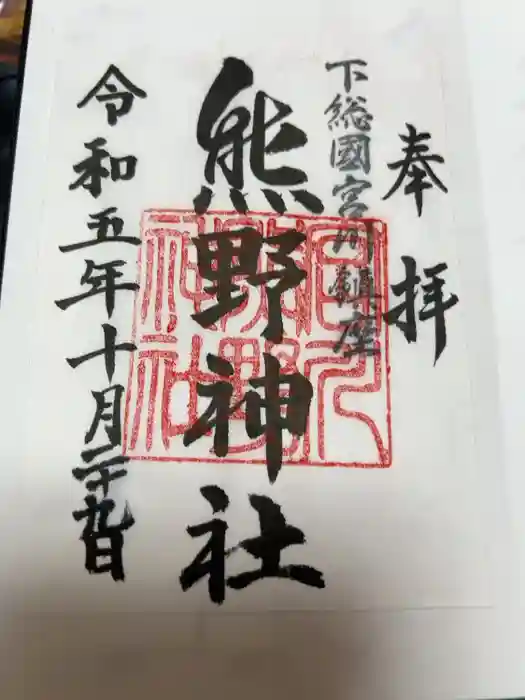 奉拝
下総國宮川鎮座
熊野神社
令和五年十月二十九日